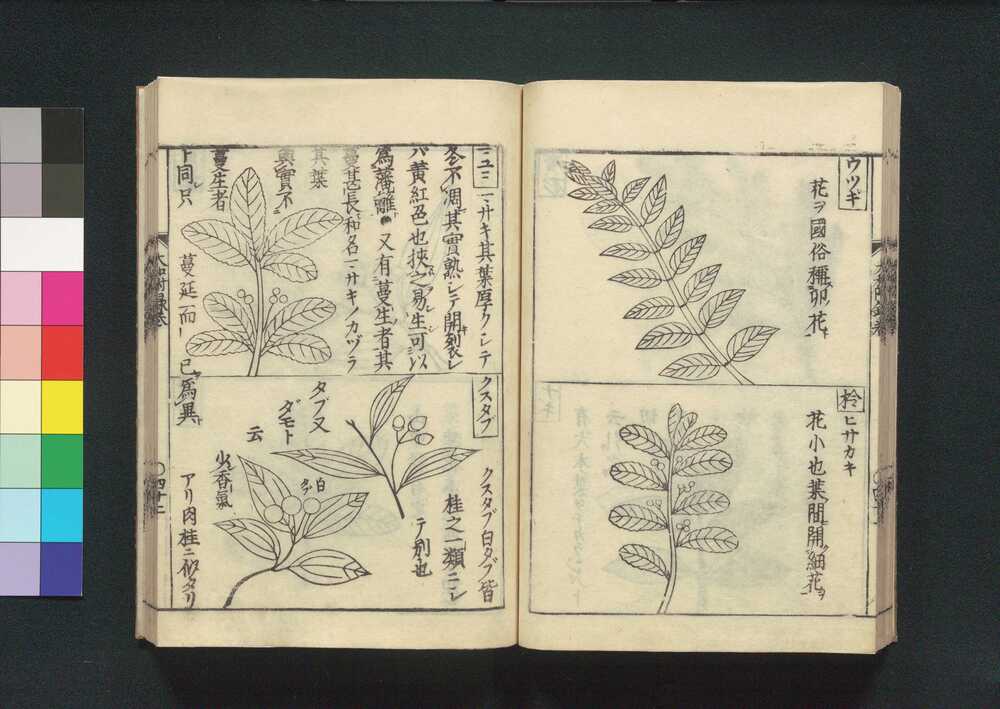 ウツギ
花ヲ國俗稱卯花
柃
ヒサカキ
花小也葉間開細花ヲ
マサキ其葉厚クシテ
冬不凋其實熟シテ開裂レ
バ黄紅色也挾之易生可以
爲藩籬又有蔓生者其
蔓甚長和名マサキノカヅラ
其葉
與實不
蔓生者
ト同只
蔓延而已爲異
クスタブ
クスタブ白タブ皆
桂之一類ニシ
テ別也
タブ又
ダモト
云
白タブ
少香氣
アリ肉桂ニ似タリ
四十二